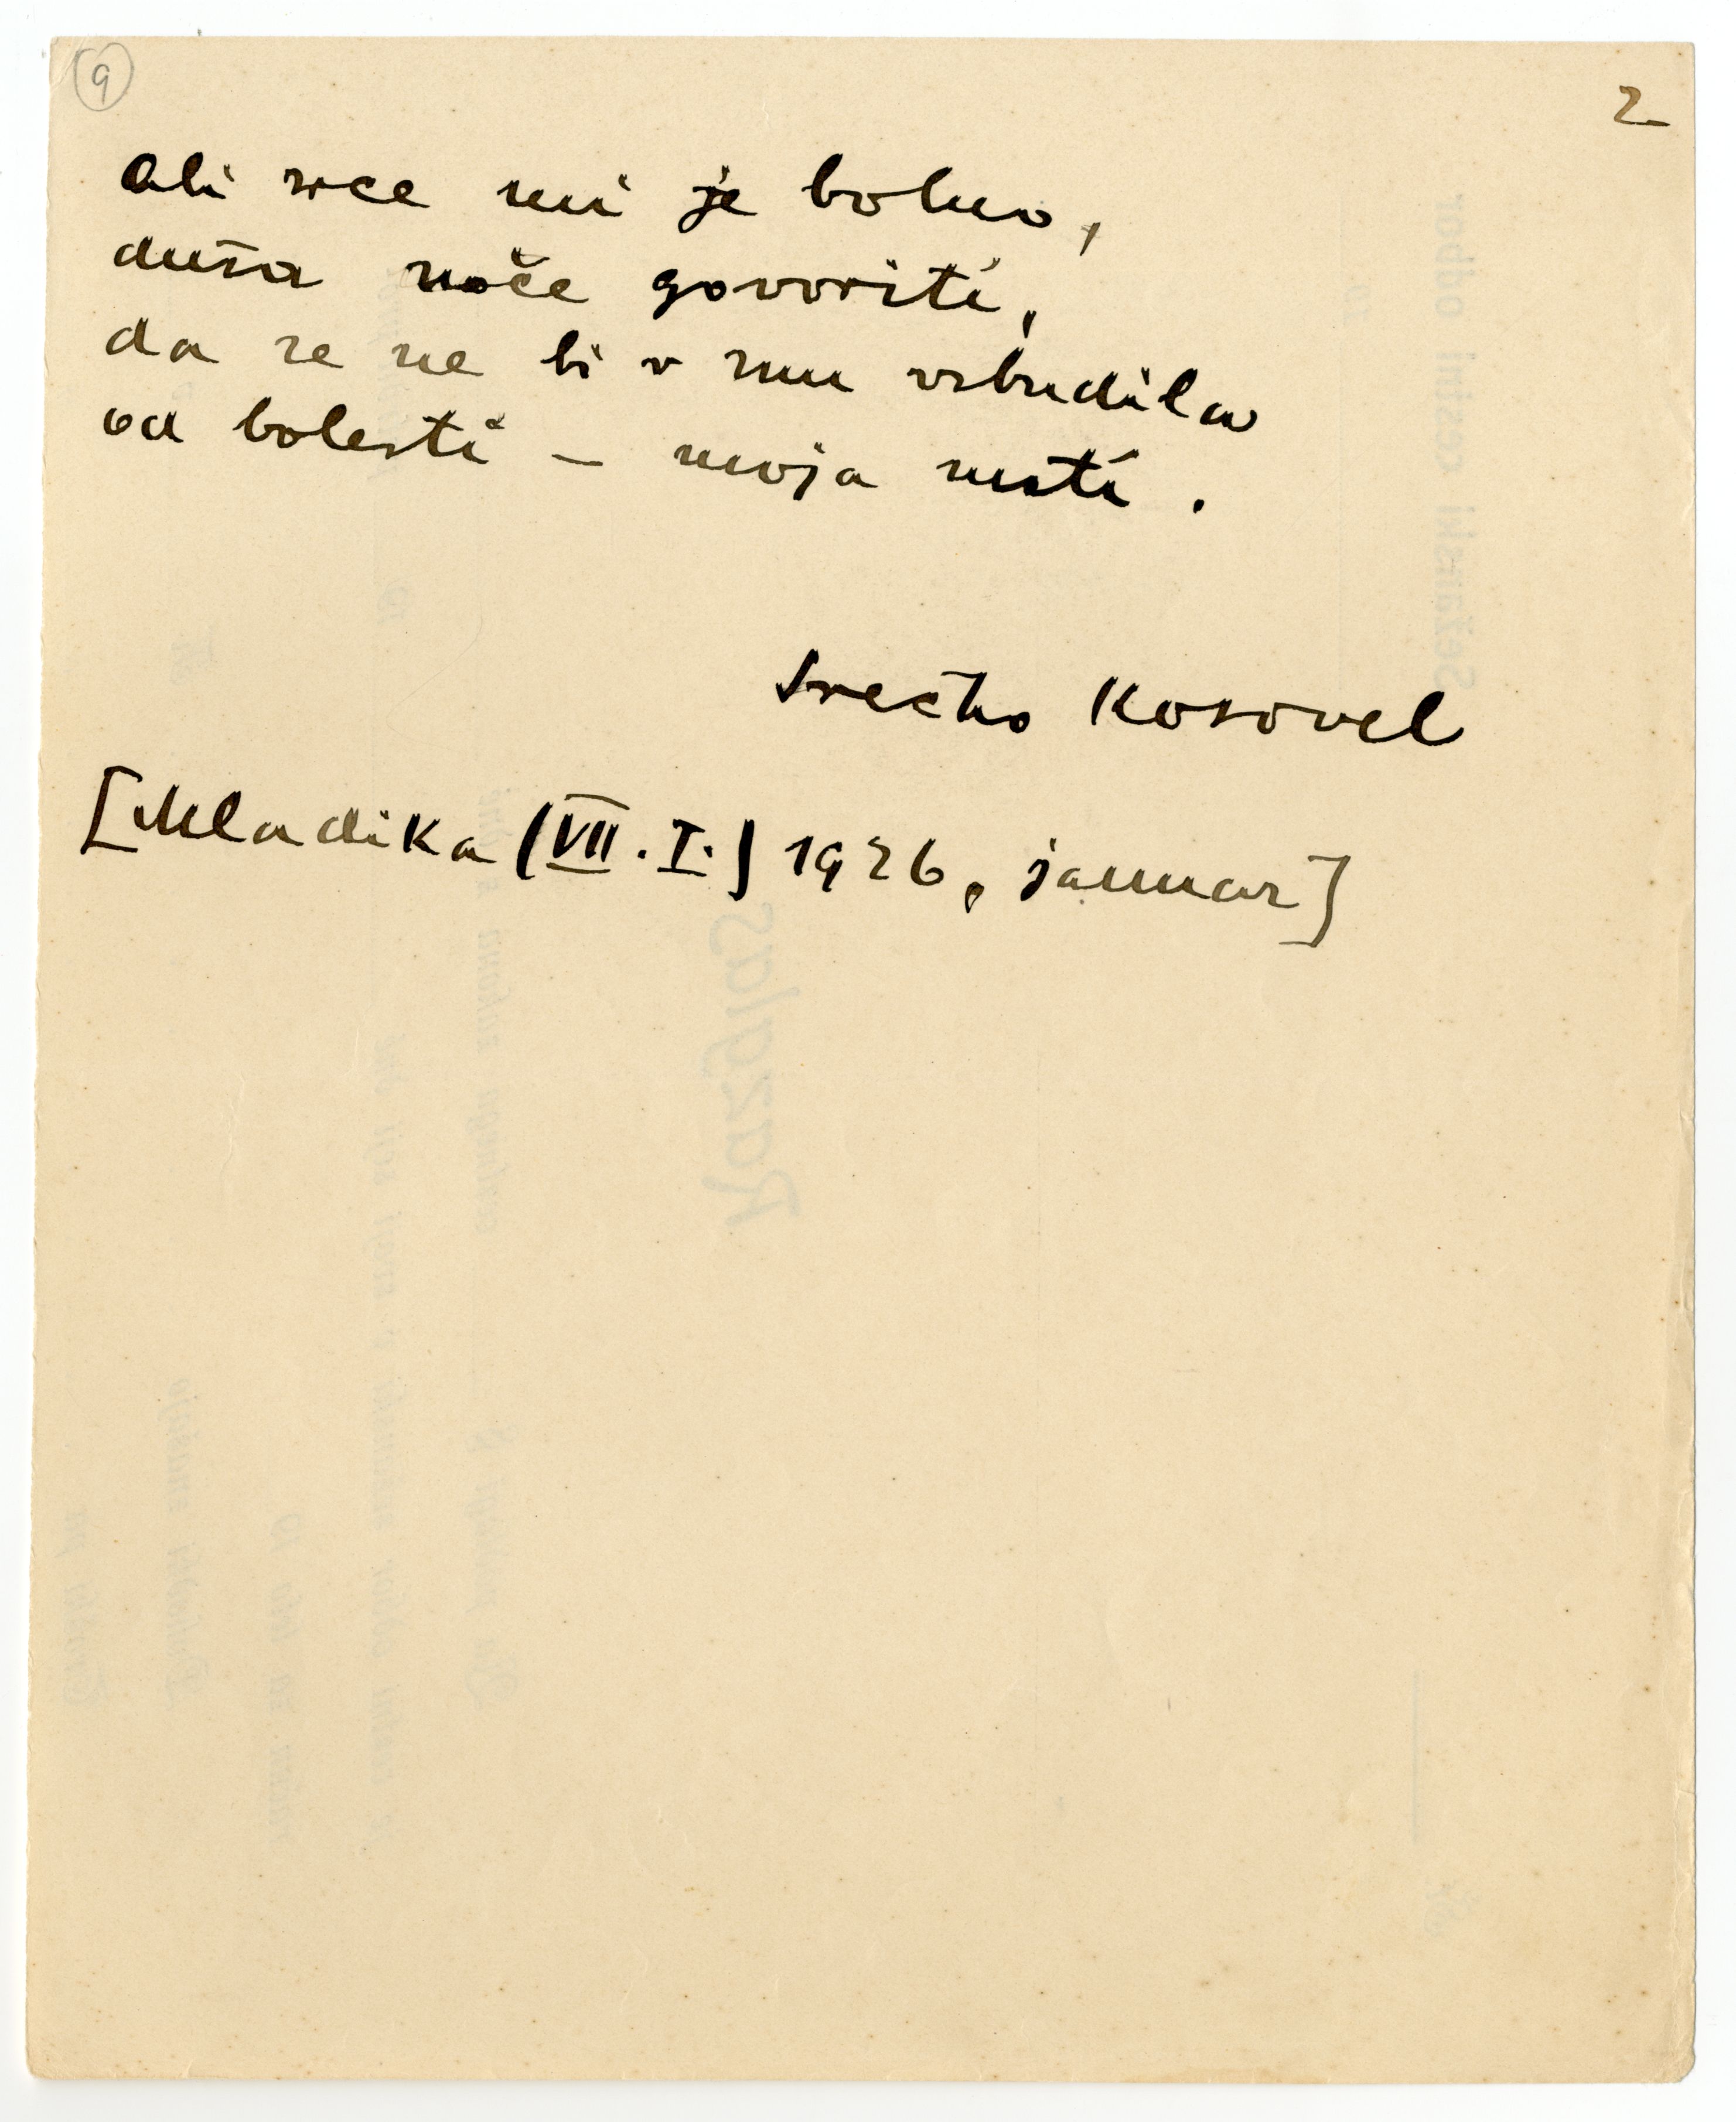 9
2
Ali srce mi je bolno,
duša noče govoriti,
da se ne bi v snu vzbudila
od bolesti – moja mati.
Srečko Kosovel
[Mladika (VII. I.) 1926, januar]
Sežanski cestni odbor
Razglas